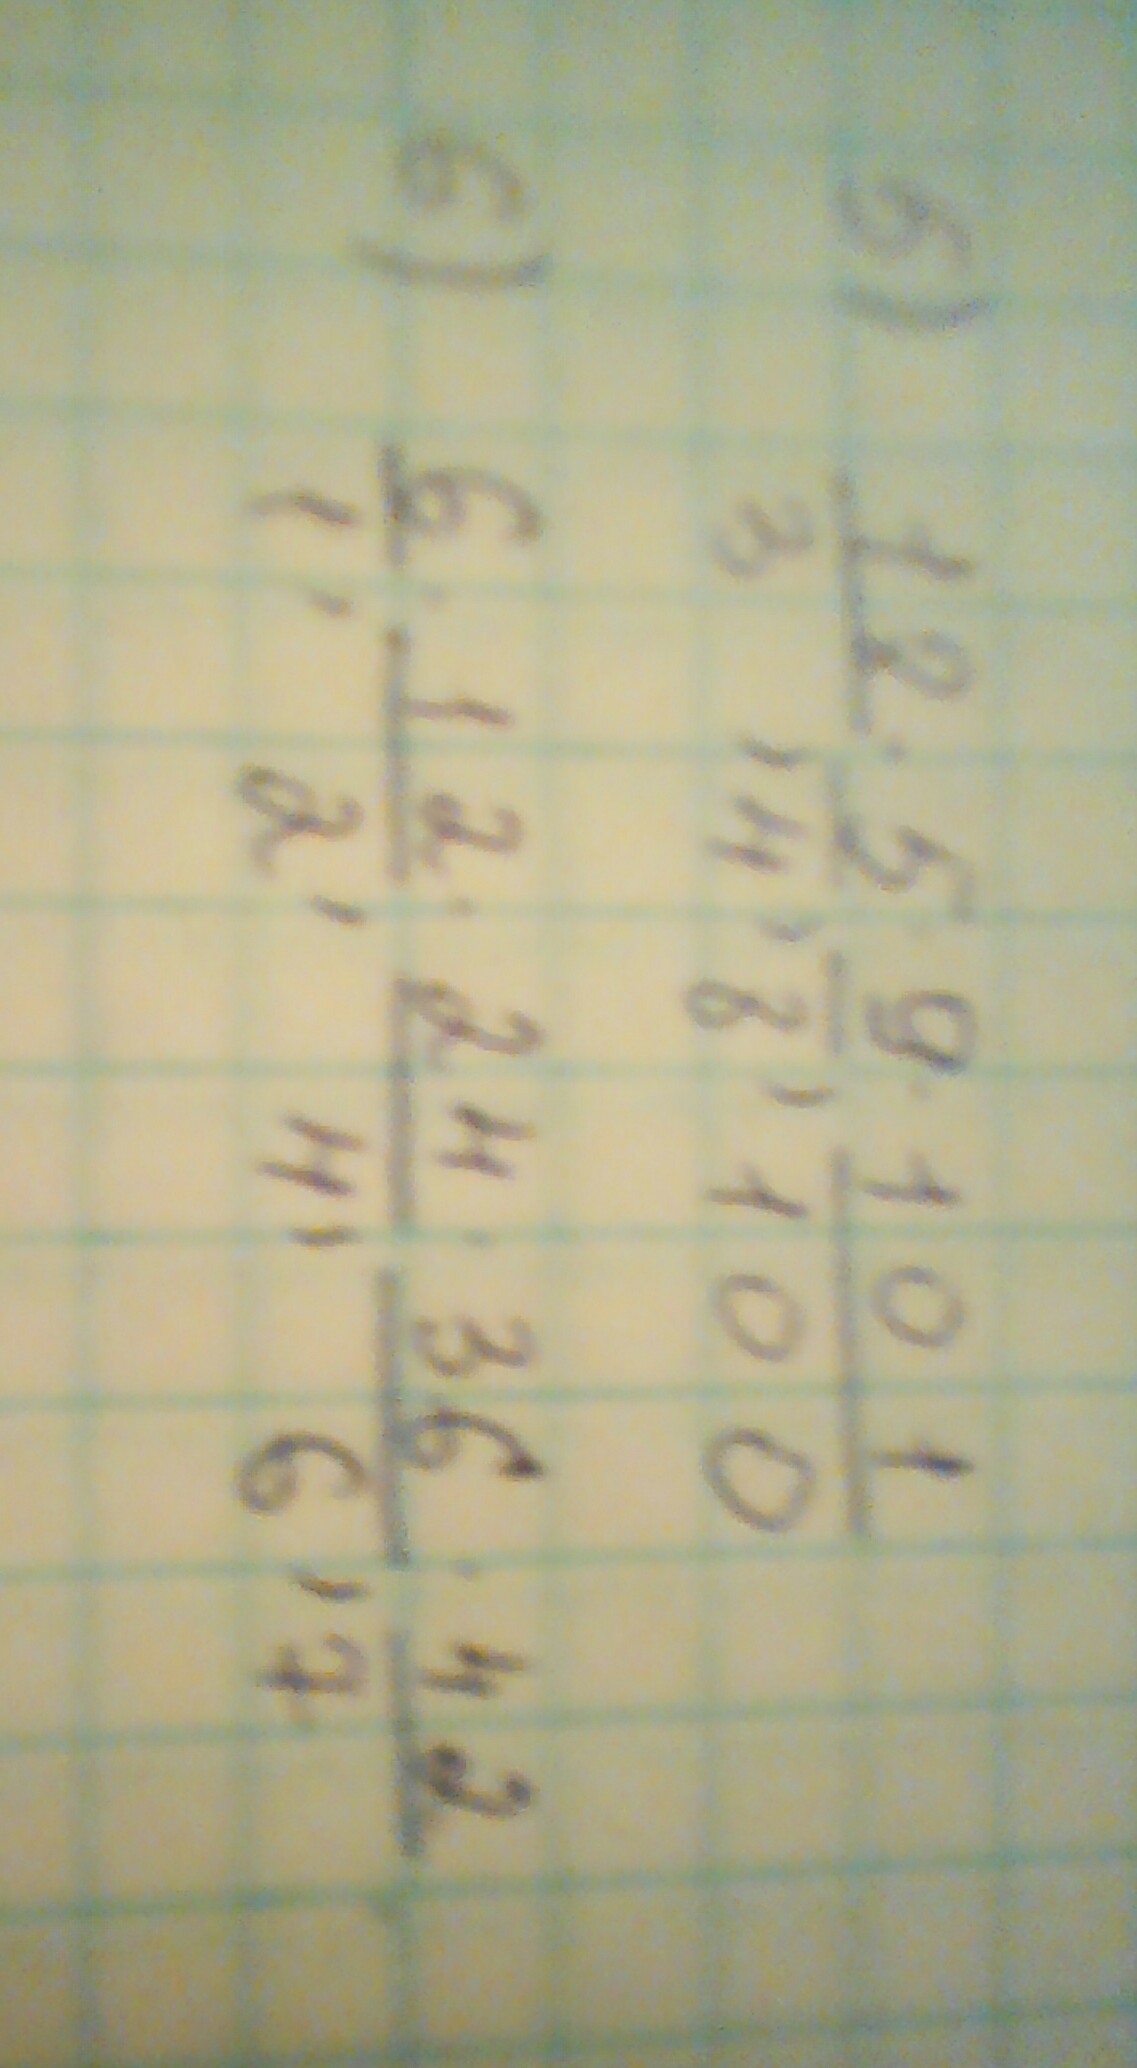 5) 12/3; 5/4; 9/8; 101/100
6) 6/1; 12/2; 24/4; 36/6; 42/7